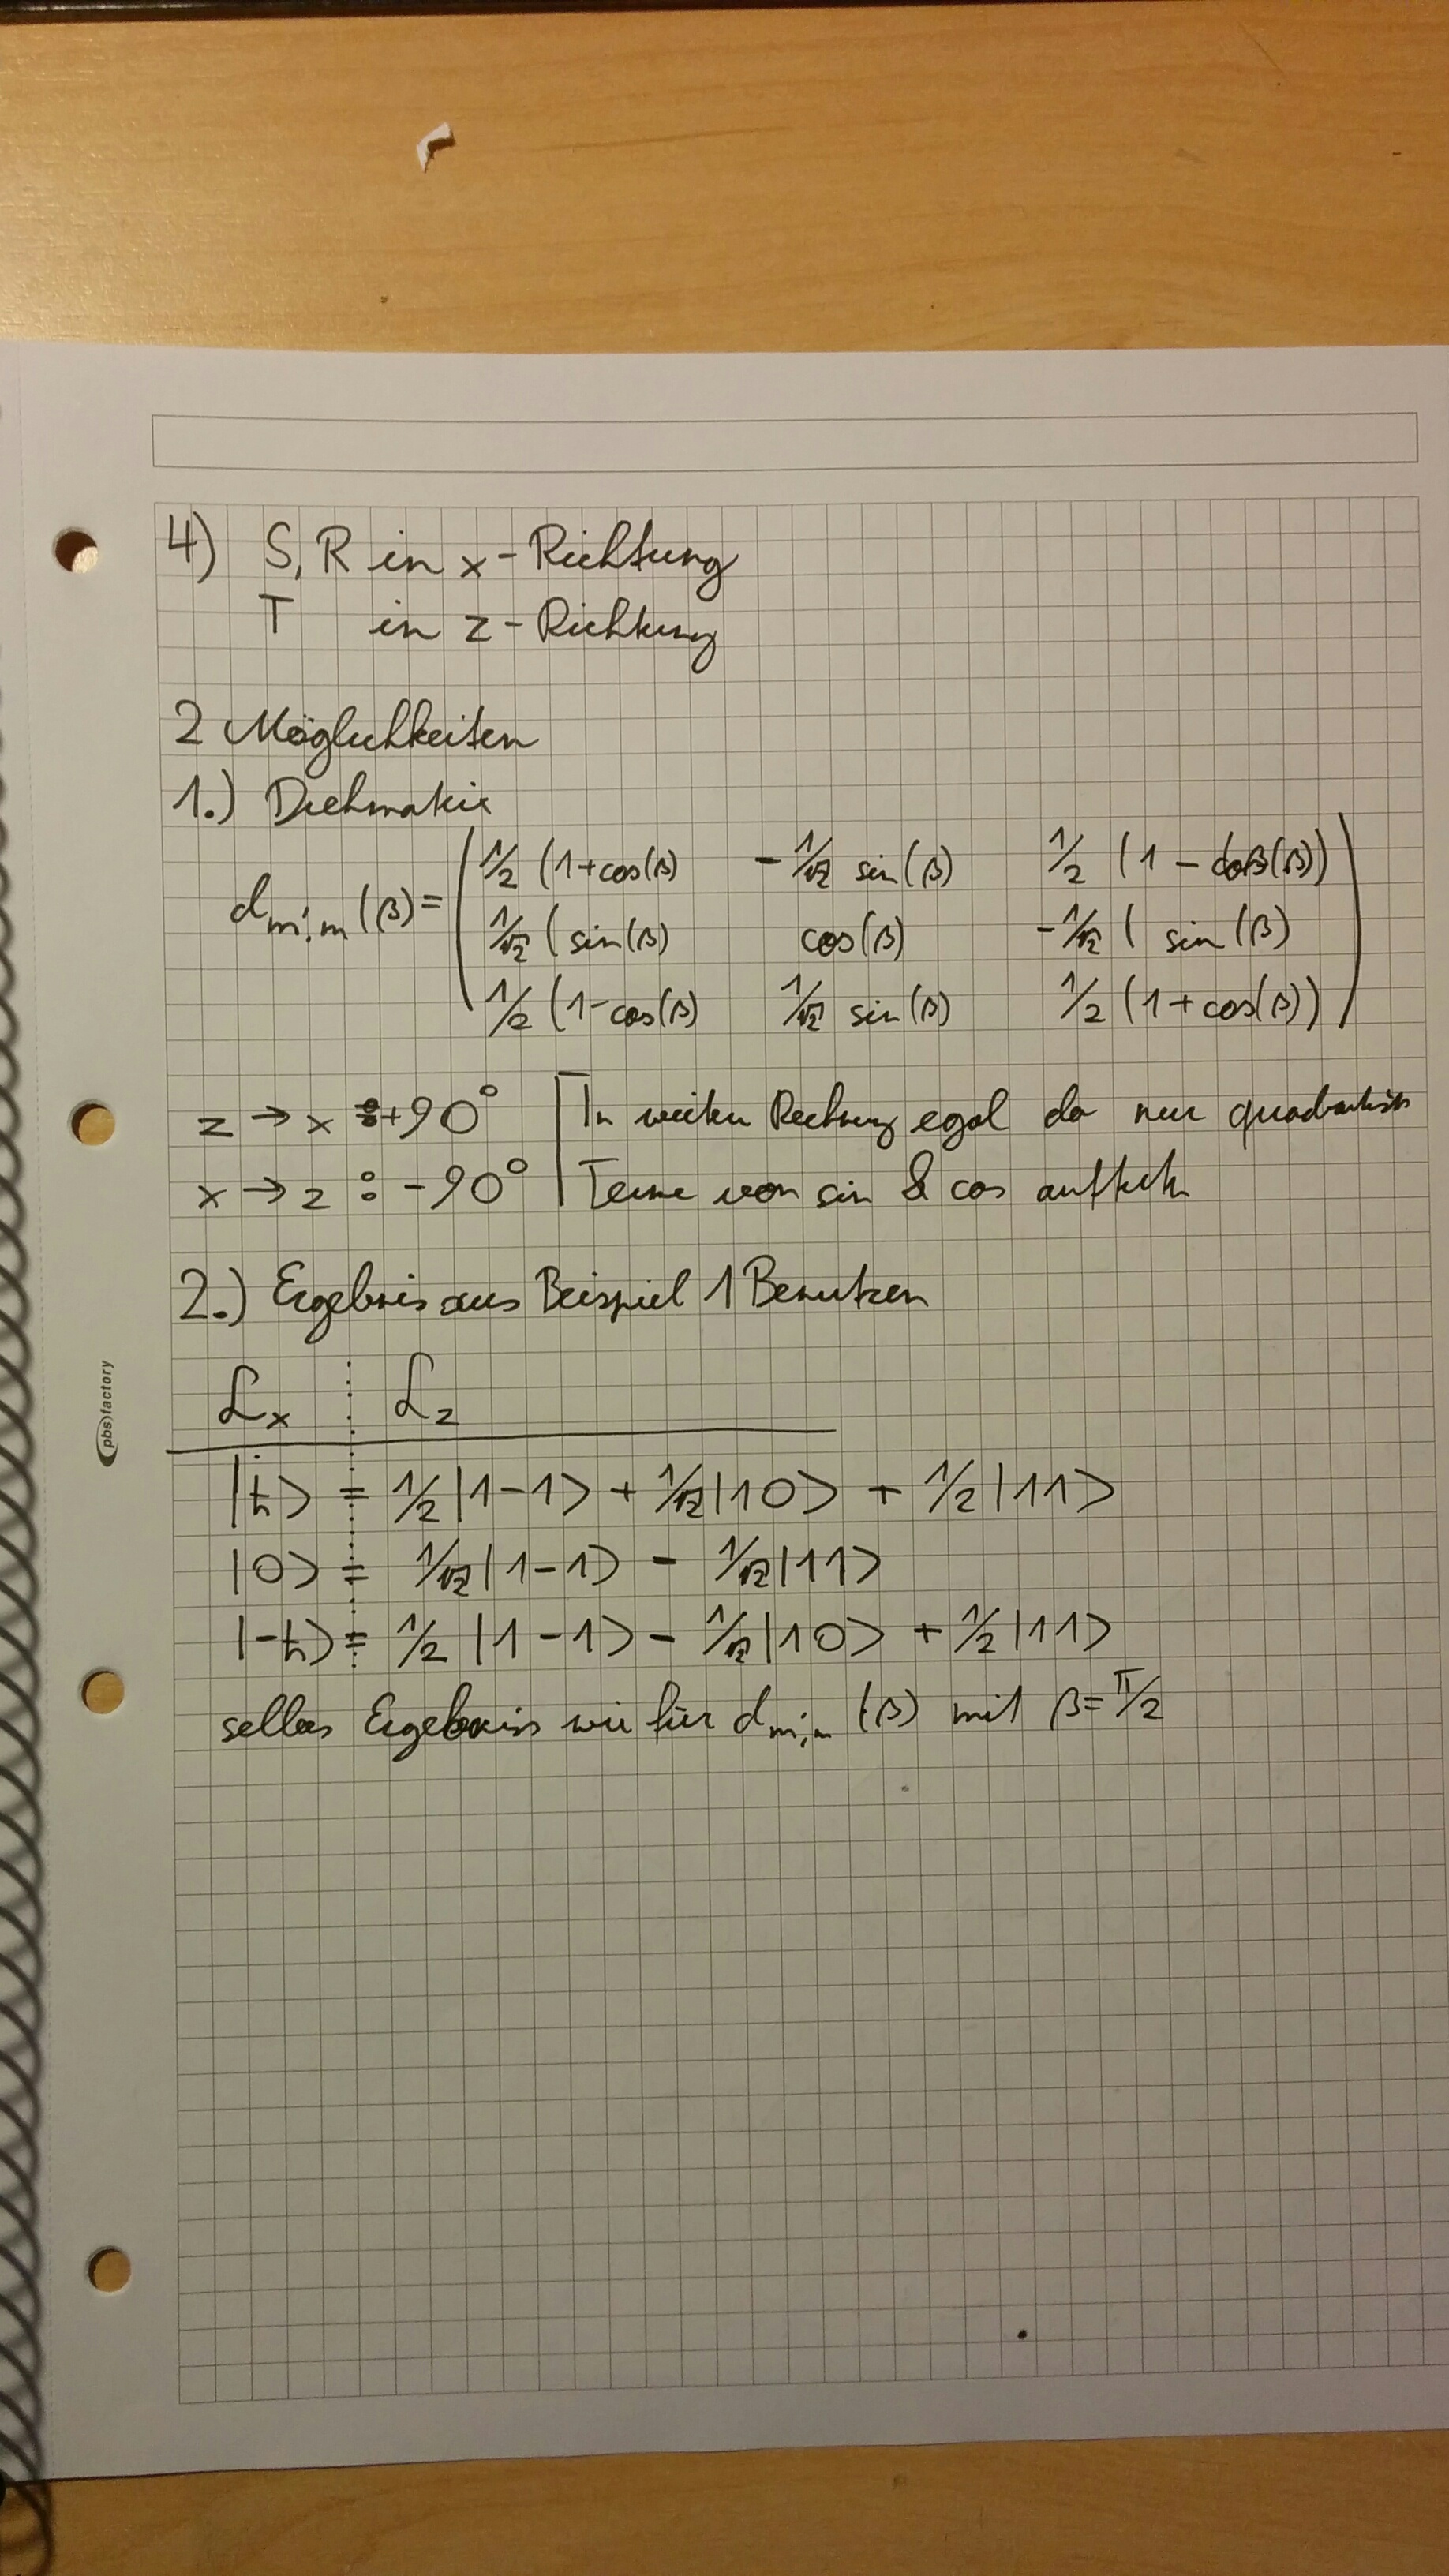 4) S, R in x-Richtung
T in z-Richtung
2 Möglichkeiten
1.) Drehmatrix
d_{m',m}(β) = ( 1/2 (1+cos(β) - 1/√2 sin(β) 1/2 (1 - cos(β))
1/√2 ( sin(β) cos(β) - 1/√2 ( sin(β)
1/2 (1-cos(β) 1/√2 sin(β) 1/2 (1+cos(β)) )
z → x : +90° | In weiter Rechnung egal da nur quadratisch
x → z : -90° | Terme von sin & cos auftreten
2.) Ergebnis aus Beispiel 1 Benutzen
L_x L_z
|ħ> = 1/2 |1-1> + 1/√2 |10> + 1/2 |11>
|0> = 1/√2 |1-1> - 1/√2 |11>
|-ħ> = 1/2 |1-1> - 1/√2 |10> + 1/2 |11>
selbes Ergebniss wie für d_{m',m} (β) mit β = π/2
pbs factory